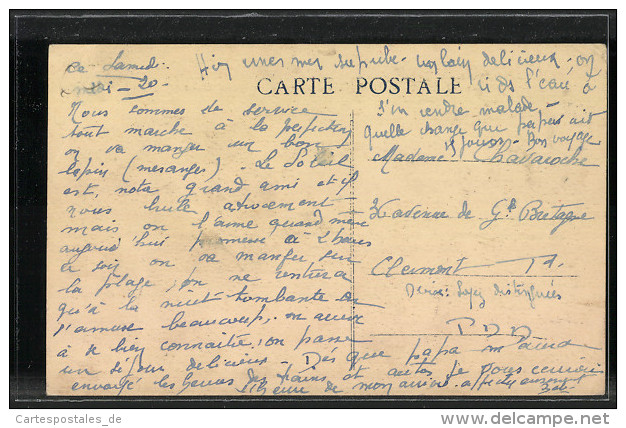 ce Samedi
midi - 20
Hier une mer superbe - un bain delicieux - on
CARTE POSTALE
l'eau, à
s'en rendre malade -
quelle chance que papa ait
15 jours - Bon voyage
Nous sommes de service
tout marche à la perfection
on va manger un bon
lapin (mesanges) - Le Soleil
est, notre grand ami et il
nous brule atrocement -
mais on l'aime quand même
aujourd'hui promenade à 2 heures
le soir on va manger sur
la plage, on ne rentrera
qu'à la nuit tombante on
s'amuse beaucoup, on arrive
à se bien connaitre, on passe
un séjour delicieux - Dès que papa m'aura
envoyé les heures des trains et autos je vous enverrai
l'heure de mon arrivée.
Madame Chavaroche
36 avenue de Gde Bretagne
Clermont Fd.
P.D.D
Cartespostales_de